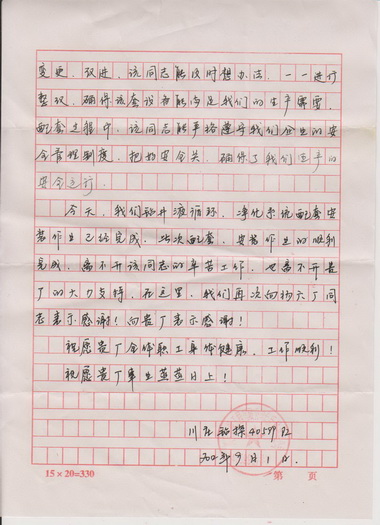 变更、改进，该同志能及时想办法，一一进行
整改，确保该套设备能满足我们的生产需要，
配套过程中，该同志能严格遵守我们企业的安
全管理制度，把好安全关，确保了我们生产的
安全运行。
今天，我们的井液循环、净化系统配套安
装作业已经完成，此次配套、安装作业的顺利
完成，离不开该同志的辛苦工作，也离不开贵
厂的大力支持，在这里，我们再次向杨六厂同
志表示感谢！向贵厂表示感谢！
祝愿贵厂全体职工身体健康、工作顺利！
祝愿贵厂事业蒸蒸日上！
川庆 40589队
年9月1日
15×20=330 第 页